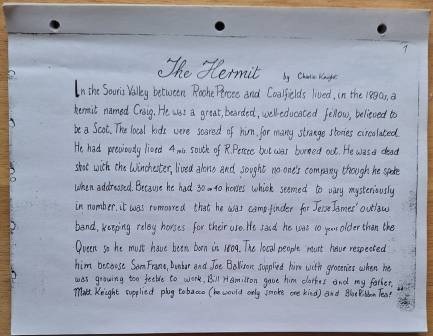 1
The Hermit by Charlie Knight
In the Souris Valley between Roche Percee and Coalfields lived, in the 1890s, a
hermit named Craig. He was a great, bearded, well-educated fellow, believed to
be a Scot. The local kids were scared of him, for many strange stories circulated.
He had previously lived 4 mls south of R. Percee but was burned out. He was a dead
shot with the Winchester, lived alone and sought no one's company though he spoke
when addressed. Because he had 30 or 40 horses which seemed to vary mysteriously
in number, it was rumoured that he was camp-finder for Jesse James' outlaw
band, keeping relay horses for their use. He said he was 10 years older than the
Queen so he must have been born in 1809. The local people must have respected
him because Sam Frame, Dunbar and Joe Ballison supplied him with groceries when he
was growing too feeble to work. Bill Hamilton gave him clothes and my father,
Matt Knight supplied plug tobacco (he would only smoke one kind) and Blue Ribbon Tea!